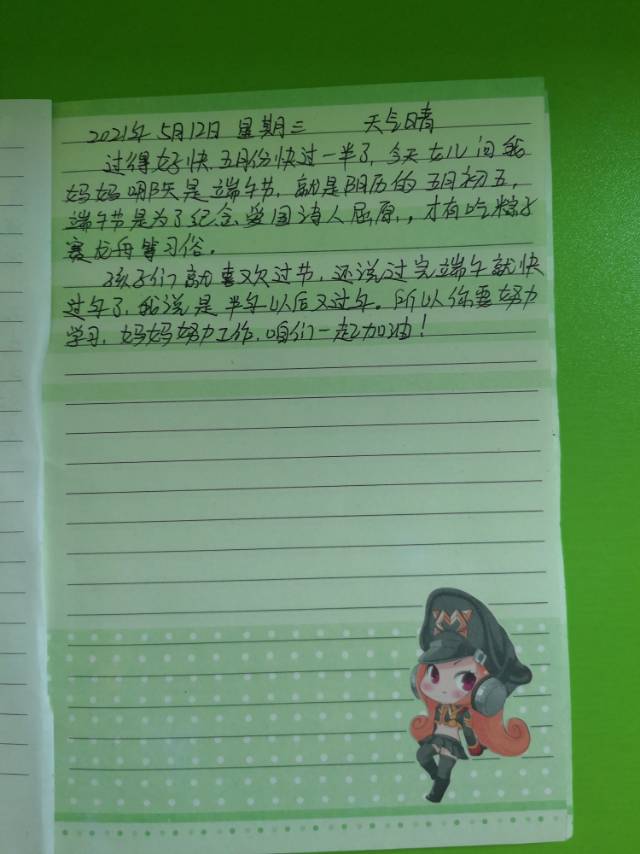 2021年5月12日 星期三 天气晴
过得好快,五月份快过一半了,今天女儿问我
妈妈哪天是端午节,就是阴历的五月初五,
端午节是为了纪念爱国诗人屈原,,才有吃粽子
赛龙舟等习俗。
孩子们就喜欢过节,还说过完端午就快
过年了,我说是半年以后又过年。所以你要努力
学习,妈妈努力工作,咱们一起加油!